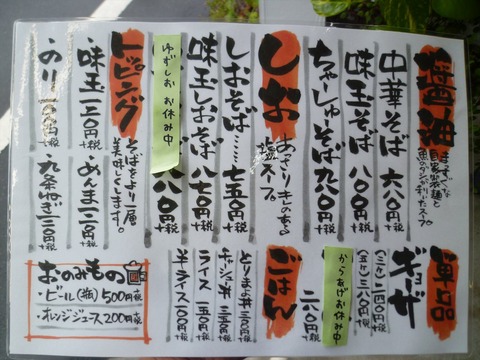 醤油
まろやかな
自家製麺と
魚のダシが利いたスープ
中華そば 六八〇円+税
味玉そば 八〇〇円+税
ちゃーしゅーそば 九八〇円+税
しお
あっさりキレのある
塩スープ。
しおそば 七五〇円+税
味玉しおそば 八七〇円+税
ゆずしお お休み中
八八〇円+税
トッピング
そばをより一層
美味しくします。
・味玉 一二〇円+税
・めんま 一二〇円+税
・のり 一〇〇円+税
・九条ねぎ 一二〇円+税
単品
ギョーザ
(三ケ) 二四〇円+税
(五ケ) 三八〇円+税
からあげお休み中
二六〇
ごはん
とりまぶし丼 三五〇円+税
チャーシュー丼 三五〇円+税
ライス 一五〇円+税
半ライス 一〇〇円+税
おのみもの
・ビール(瓶) 500円+税
・オレンジジュース 200円+税